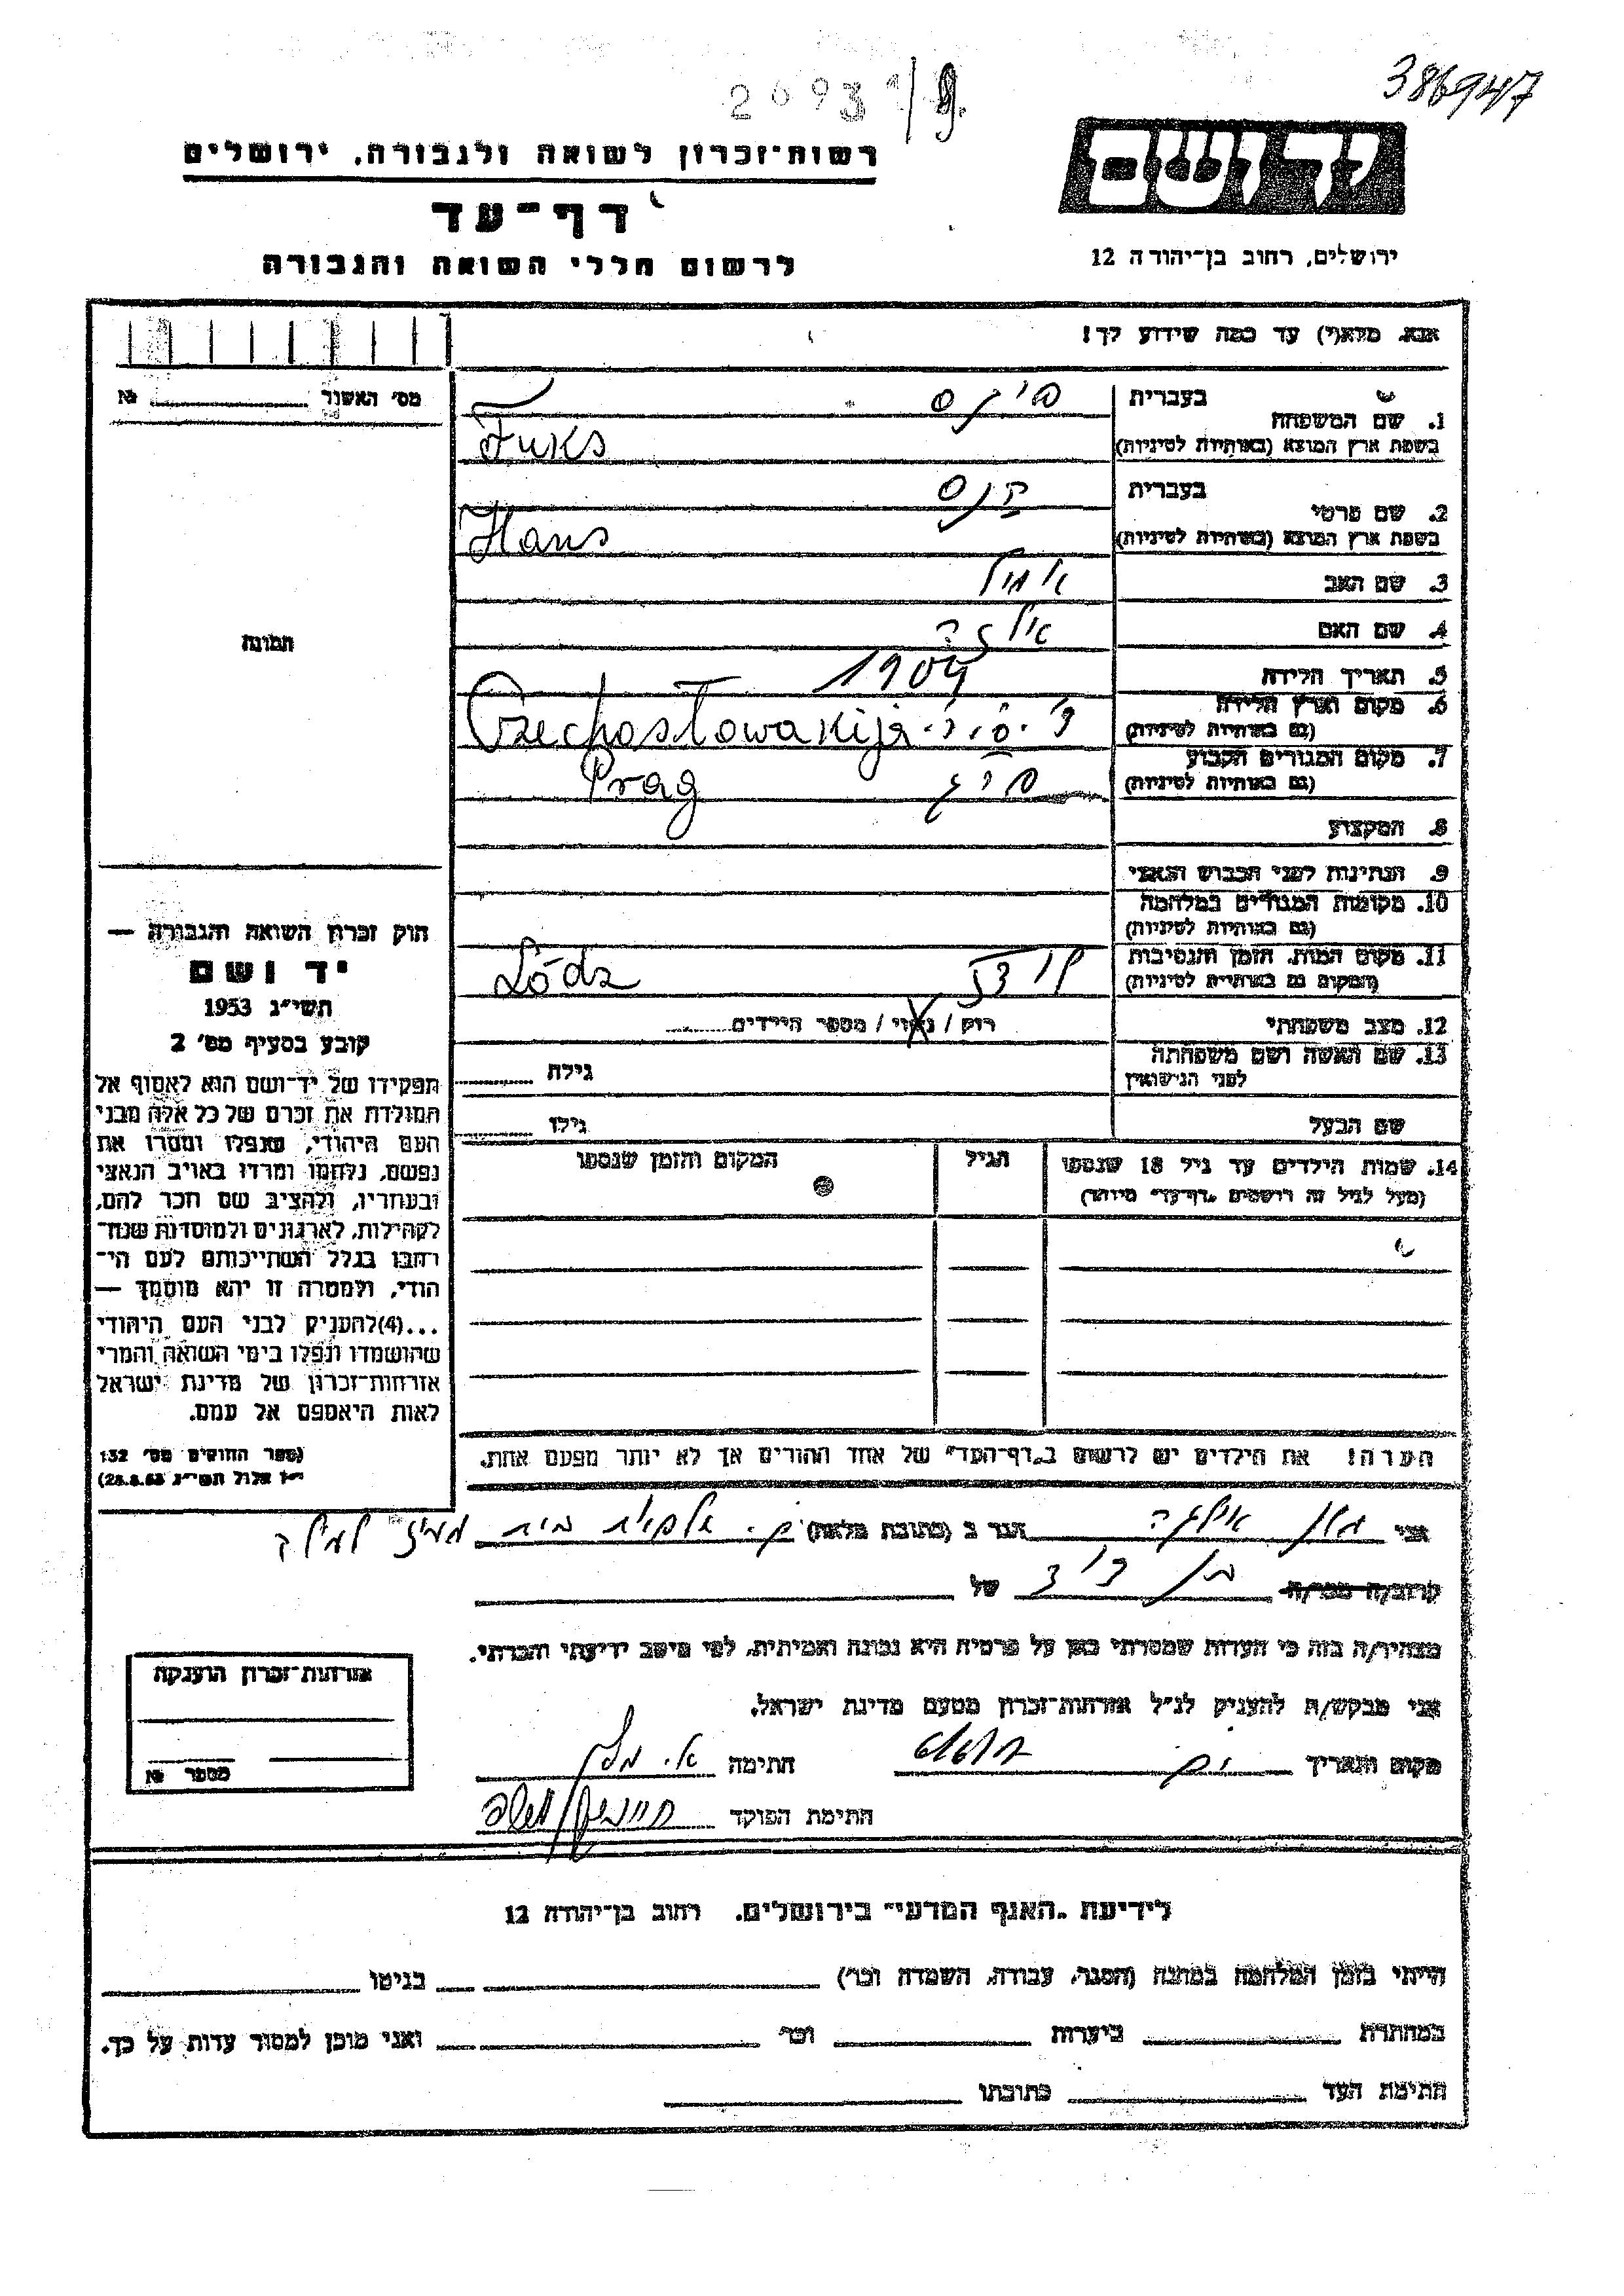 386947
2693 1/9
רשות־זכרון לשואה ולגבורה, ירושלים
דף־עד
לרשום חללי השואה והגבורה
יד ושם
ירושלים, רחוב בן־יהודה 12
אנא מלא(י) עד כמה שידוע לך!
מס׳ האשור № 
1. שם המשפחה
בעברית פוקס
בשפת ארץ המוצא (באותיות לטיניות) Fuks
2. שם פרטי
בעברית הנס
בשפת ארץ המוצא (באותיות לטיניות) Hans
3. שם האב אמיל
4. שם האם אולגה
5. תאריך הלידה 1904
6. מקום וארץ הלידה
(גם באותיות לטיניות) צ׳.ס.ר. Czechosłowakija
7. מקום המגורים הקבוע
(גם באותיות לטיניות) פרג Prag
8. המקצוע
9. הנתינות לפני הכבוש הנאצי
10. מקומות המגורים במלחמה
(גם באותיות לטיניות)
11. מקום המות, הזמן והנסיבות
(המקום גם באותיות לטיניות) לודז׳ Łódz
12. מצב משפחתי רוק / נשוי / מספר הילדים
13. שם האשה ושם משפחתה
לפני הנישואין גילה
שם הבעל גילו
14. שמות הילדים עד גיל 18 שנספו הגיל המקום והזמן שנספו
(מעל לגיל זה רושמים „דף־עד״ מיוחד)
הערה! את הילדים יש לרשום ב„דף־העד״ של אחד ההורים אך לא יותר מפעם אחת.
תמונה
חוק זכרון השואה והגבורה —
יד ושם
תשי״ג 1953
קובע בסעיף מס׳ 2
תפקידו של יד־ושם הוא לאסוף אל
המולדת את זכרם של כל אלה מבני
העם היהודי, שנפלו ומסרו את
נפשם, נלחמו ומרדו באויב הנאצי
ובעוזריו, ולהציב שם וזכר להם,
לקהילות, לארגונים ולמוסדות שנח־
רבו בגלל השתייכותם לעם הי־
הודי, ולמטרה זו יהא מוסמך —
...(4)להעניק לבני העם היהודי
שהושמדו ונפלו בימי השואה והמרי
אזרחות־זכרון של מדינת ישראל
לאות היאספם אל עמם.
(ספר החוקים מס׳ 132
י״ז אלול תשי״ג 28.8.53)
אני אולגה הגר ב (כתובת מלאה) ק.
קרוב/ה מכר/ה בן דוד של
מצהיר/ה בזה כי העדות שמסרתי כאן על פרטיה היא נכונה ואמיתית, לפי מיטב ידיעתי והכרתי.
אני מבקש/ת להעניק לנ״ל אזרחות־זכרון מטעם מדינת ישראל.
מקום ותאריך חתימה א.
חתימת הפוקד
אזרחות־זכרון הוענקה
מספר №
לידיעת „האגף המדעי״ בירושלים. רחוב בן־יהודה 12
הייתי בזמן המלחמה במחנה (הסגר, עבודה, השמדה וכו׳) בגיטו
במחתרת ביערות וכו׳ ואני מוכן למסור עדות על כך.
חתימת העד כתובתו